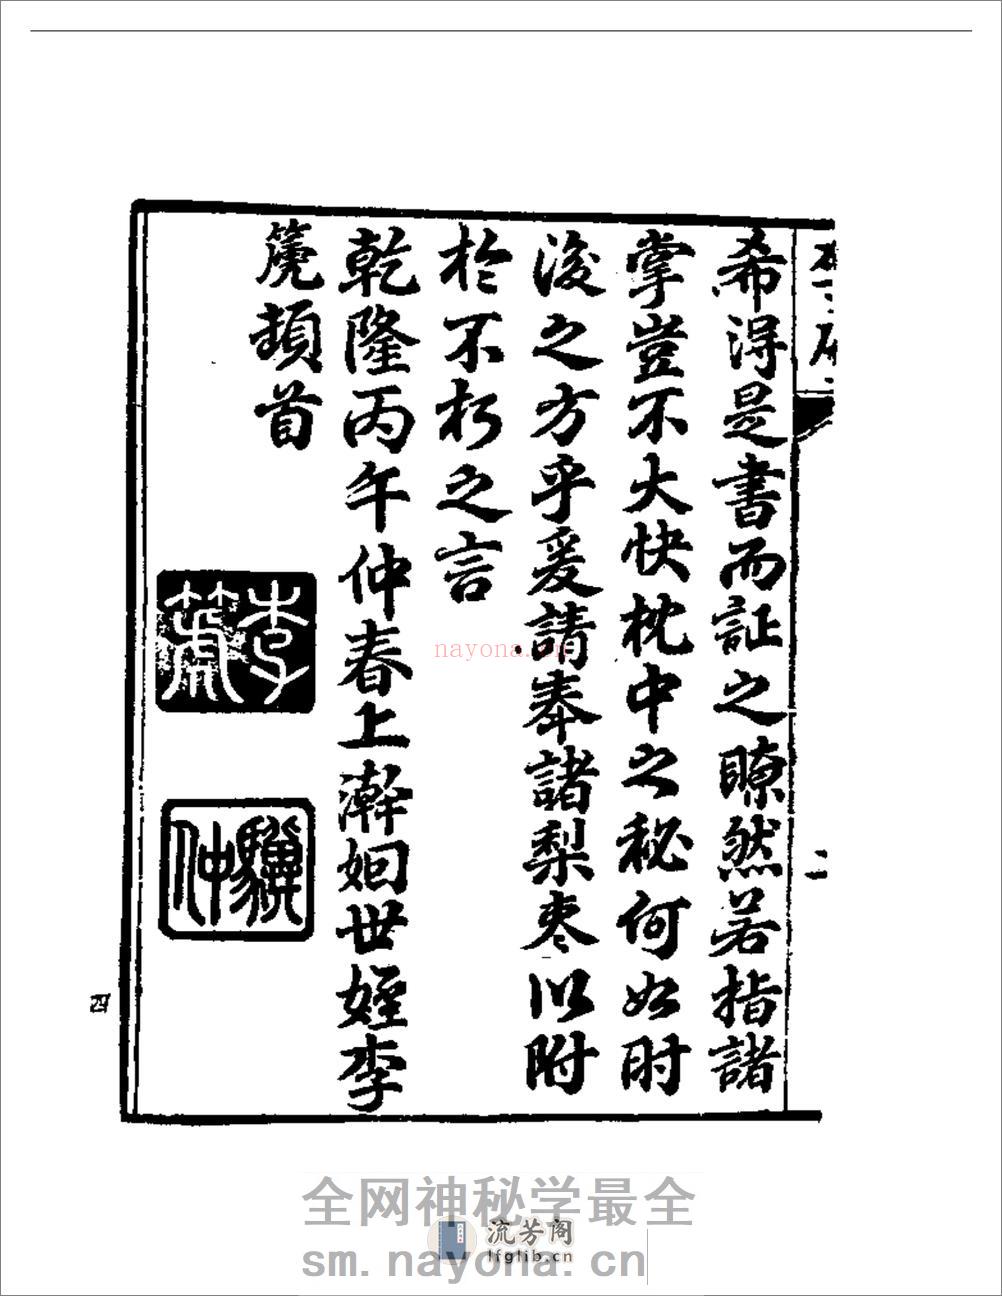 序
二
希得是書而証之瞭然若指諸
掌豈不大快枕中之秘何如肘
後之方乎爰請奉諸梨枣以附
於不朽之言
乾隆丙午仲春上澣姻世姪李
篪頓首
李篪
仲
四
nayona.cn
全网神秘学最全
流芳阁
lfglib.cn
sm.nayona.cn